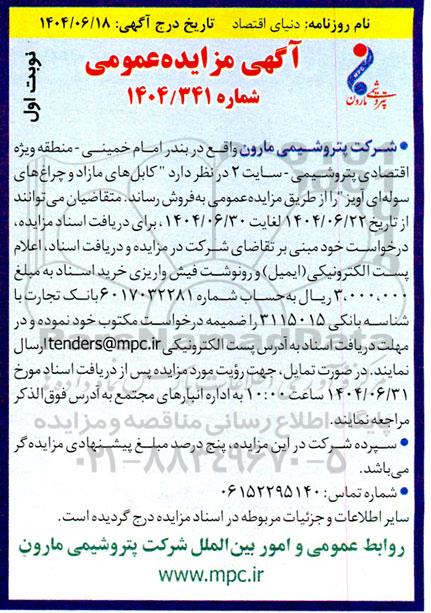 نام روزنامه: دنیای اقتصاد تاریخ درج آگهی: ۱۴۰۴/۰۶/۱۸
آگهی مزایده عمومی
شماره ۱۴۰۴/۳۴۱
نوبت اول
MPC
پتروشیمی مارون
• شرکت پتروشیمی مارون واقع در بندر امام خمینی - منطقه ویژه
اقتصادی پتروشیمی - سایت ۲ در نظر دارد "کابل‌های مازاد و چراغ‌های
سوله‌ای آویز" را از طریق مزایده عمومی به‌فروش رساند. متقاضیان می‌توانند
از تاریخ ۱۴۰۴/۰۶/۲۲ لغایت ۱۴۰۴/۰۶/۳۰، برای دریافت اسناد مزایده،
درخواست خود مبنی بر تقاضای شرکت در مزایده و دریافت اسناد، اعلام
پست الکترونیکی (ایمیل) و رونوشت فیش واریزی خرید اسناد به مبلغ
۳،۰۰۰،۰۰۰ ریال به‌حساب شماره ۶۰۱۷۰۳۲۲۸۱ بانک تجارت با
شناسه بانکی ۳۱۱۵۰۱۵ را ضمیمه درخواست مکتوب خود نموده و در
مهلت دریافت اسناد به آدرس پست الکترونیکی tenders@mpc.ir ارسال
نمایند. در صورت تمایل، جهت رؤیت مورد مزایده پس از دریافت اسناد مورخ
۱۴۰۴/۰۶/۳۱ ساعت ۱۰:۰۰ به اداره انبارهای مجتمع به آدرس فوق‌الذکر
مراجعه نمایند.
پایگاه اطلاع رسانی مناقصه و مزایده
• سپرده شرکت در این مزایده، پنج درصد مبلغ پیشنهادی مزایده‌گر
می‌باشد.
۰۲۱-۸۸۳۴۹۶۷۰-۵
• شماره تماس: ۰۶۱۵۲۲۹۵۱۴۰
سایر اطلاعات و جزئیات مربوطه در اسناد مزایده درج گردیده است.
روابط عمومی و امور بین‌الملل شرکت پتروشیمی مارون
www.mpc.ir